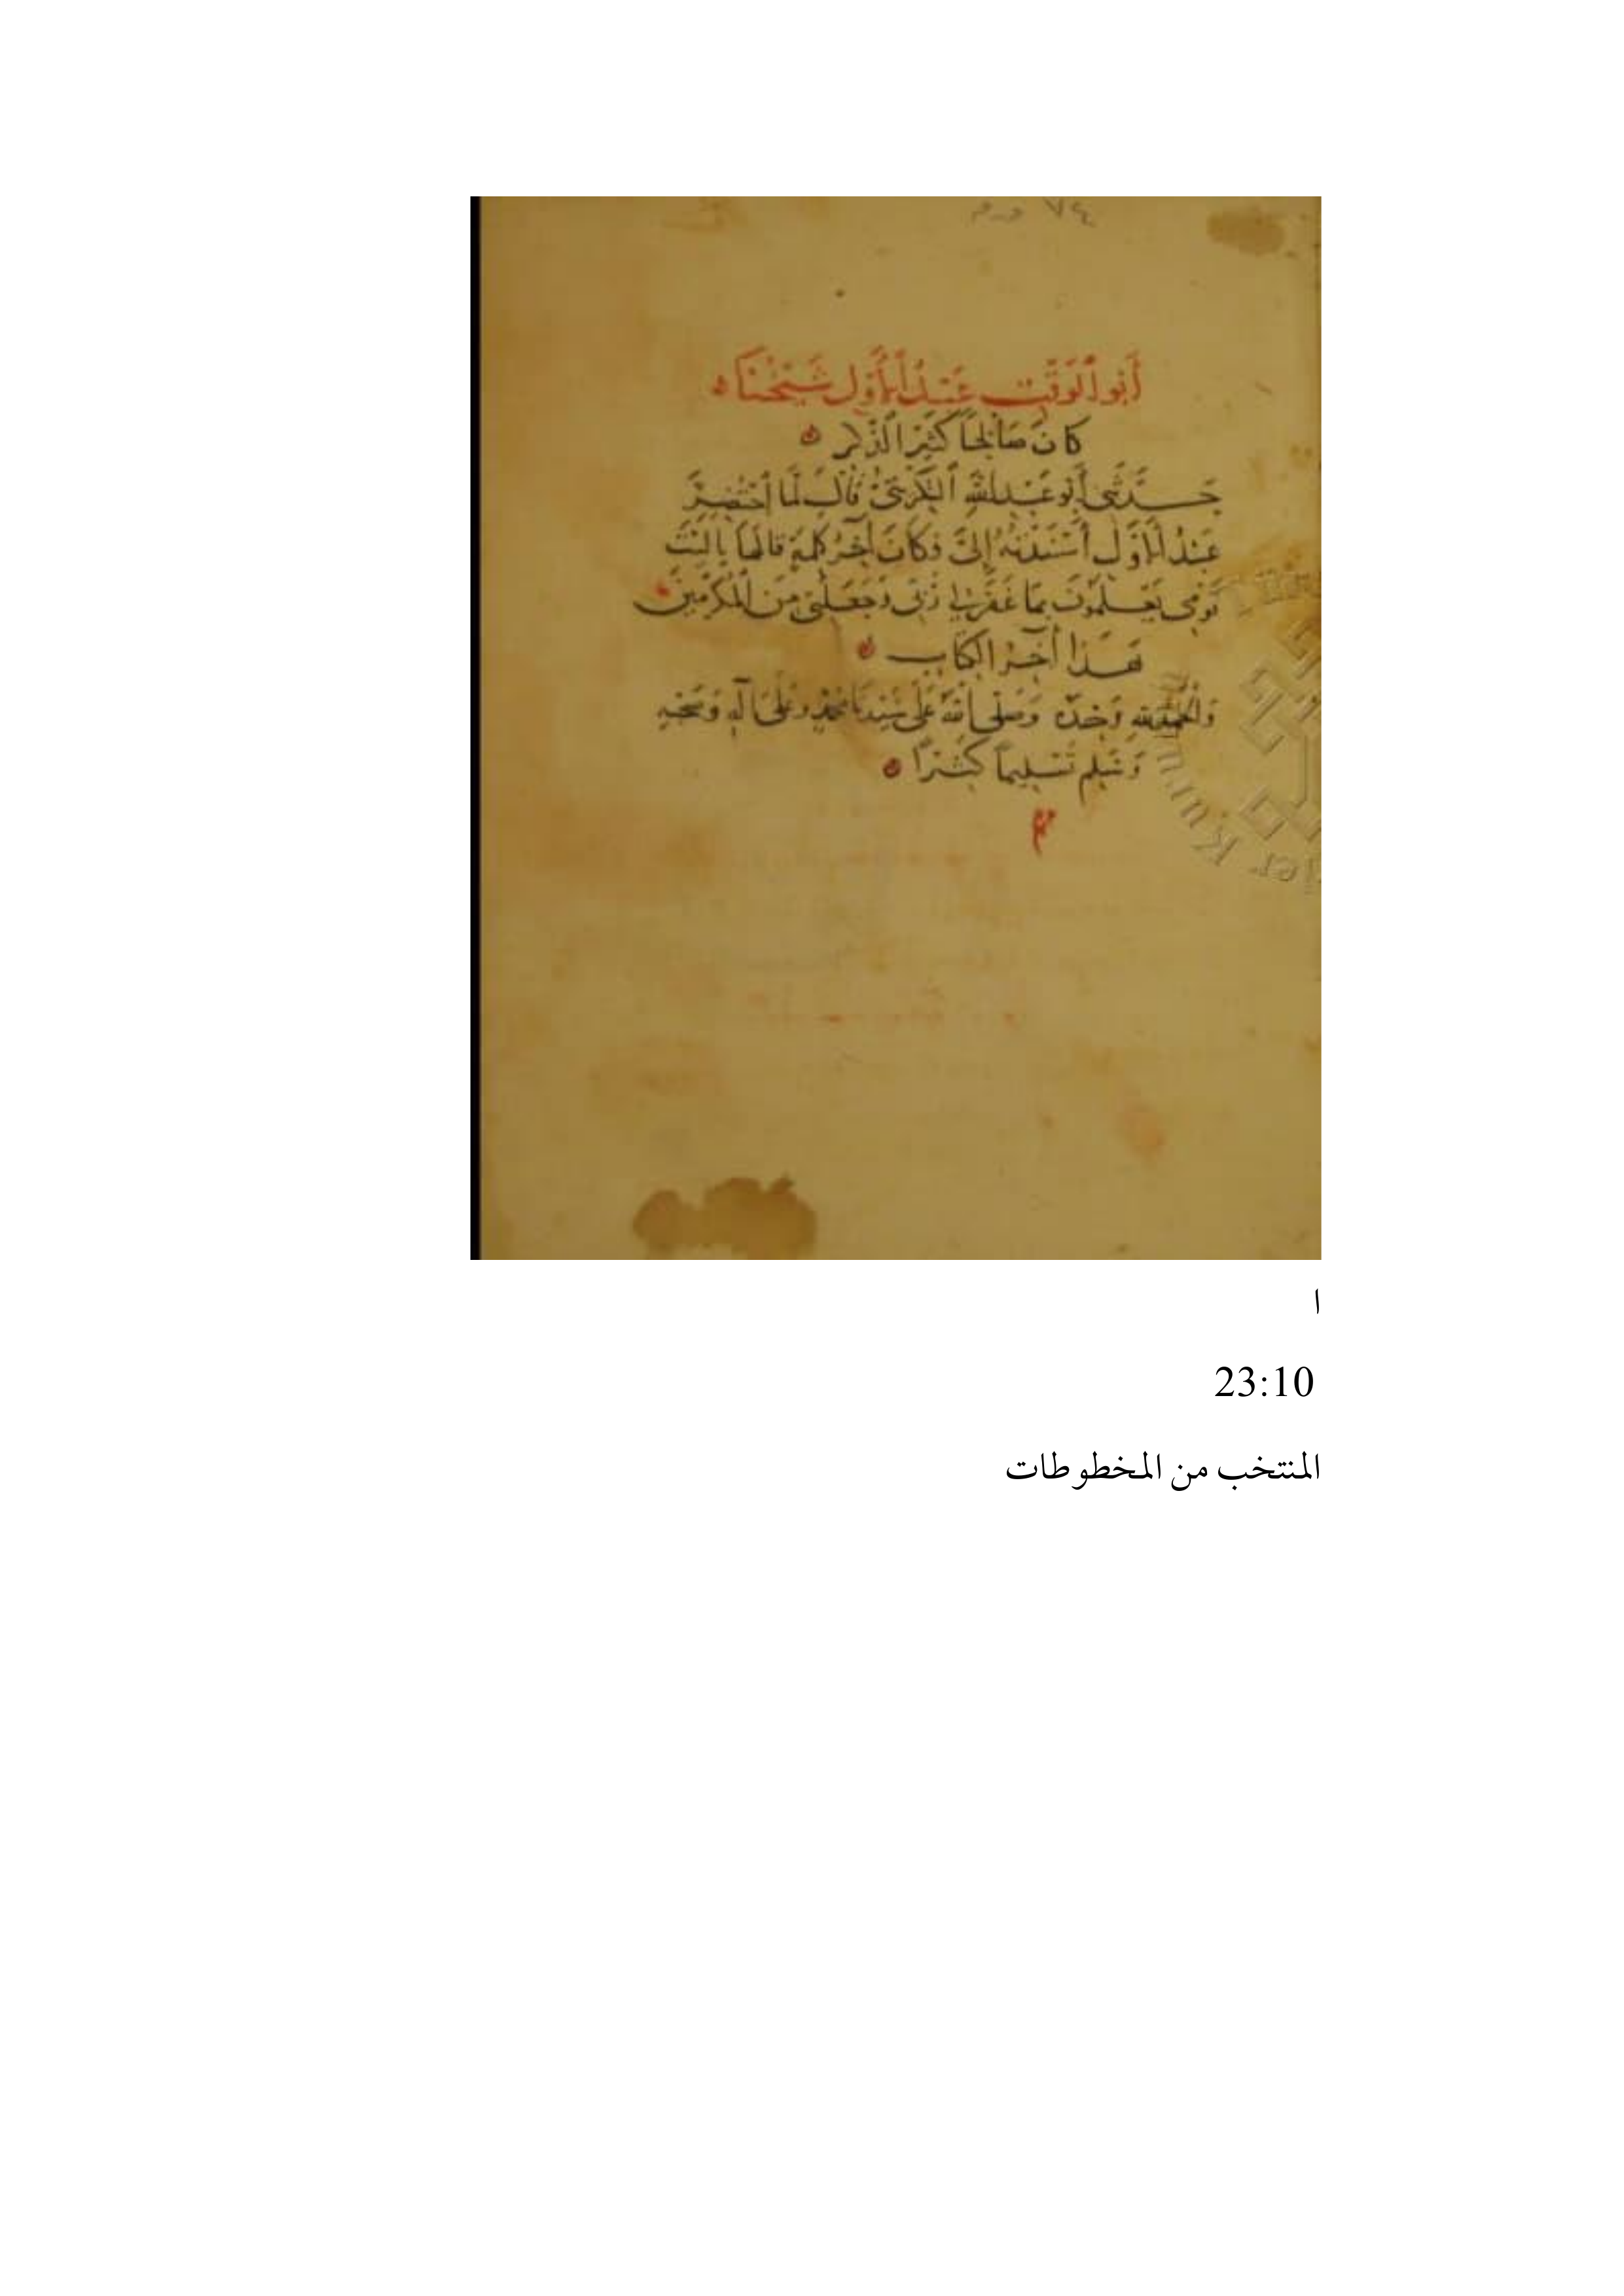 ٧٤ و.م
أَبُو الْوَقْتِ عَبْدُ الْأَوَّلِ شَيْخُنَا
كَانَ صَالِحًا كَثِيرَ الذِّكْرِ
حَدَّثَنِي أَبُو عَبْدِ اللَّهِ التَّكْرِيتِيُّ قَالَ لَمَّا احْتُضِرَ
عَبْدُ الْأَوَّلِ أَسْنَدْتُهُ إِلَيَّ وَكَانَ آخِرُ كَلِمَةٍ قَالَهَا يَا لَيْتَ
قَوْمِي يَعْلَمُونَ بِمَا غَفَرَ لِي رَبِّي وَجَعَلَنِي مِنَ الْمُكْرَمِينَ
هَذَا آخِرُ الْكِتَابِ
وَالْحَمْدُ لِلَّهِ وَحْدَهُ وَصَلَّى اللَّهُ عَلَى سَيِّدِنَا مُحَمَّدٍ وَعَلَى آلِهِ وَصَحْبِهِ
وَسَلَّمَ تَسْلِيمًا كَثِيرًا
ا
23:10
المنتخب من المخطوطات